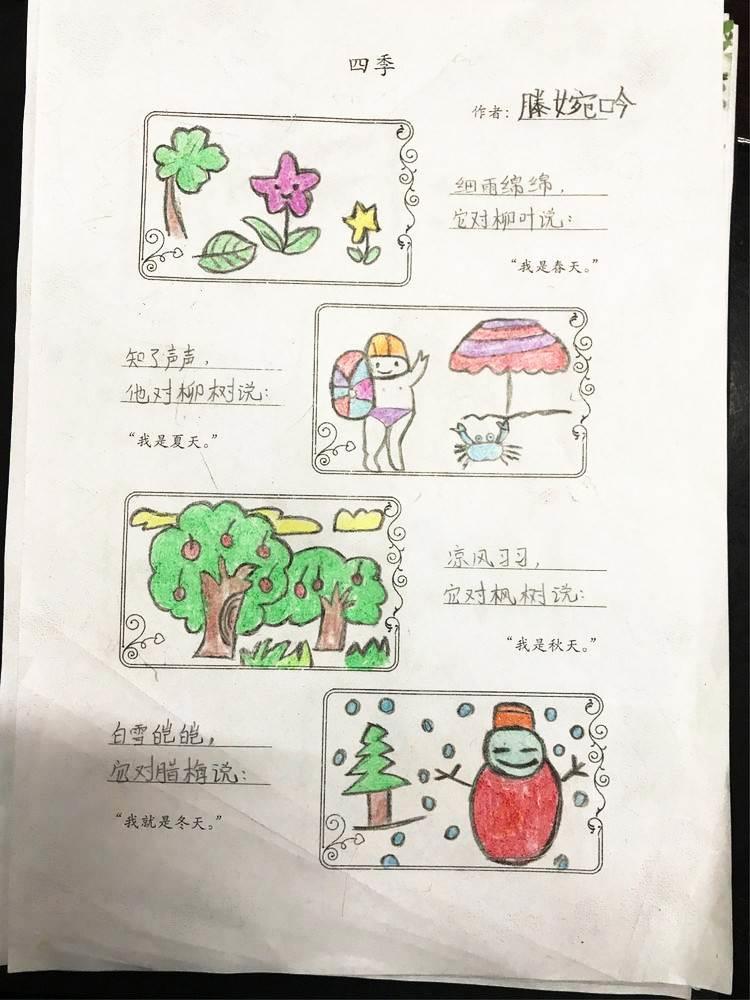 四季
作者：滕婉吟
细雨绵绵，
它对柳叶说：
“我是春天。”
知了声声，
他对柳树说：
“我是夏天。”
凉风习习，
它对枫树说：
“我是秋天。”
白雪皑皑，
它对腊梅说：
“我就是冬天。”